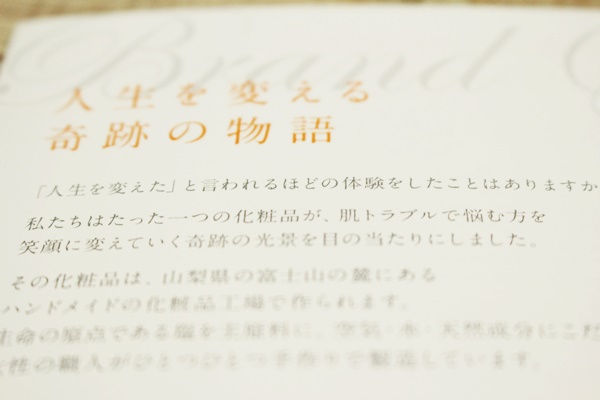 Brand
人生を変える
奇跡の物語
「人生を変えた」と言われるほどの体験をしたことはありますか
私たちはたった一つの化粧品が、肌トラブルで悩む方を
笑顔に変えていく奇跡の光景を目の当たりにしました。
その化粧品は、山梨県の富士山の麓にある
ハンドメイドの化粧品工場で作られます。
生命の原点である塩を主原料に、空気・水・天然成分にこだ
性の職人がひとつひとつ手作りで製造しています。